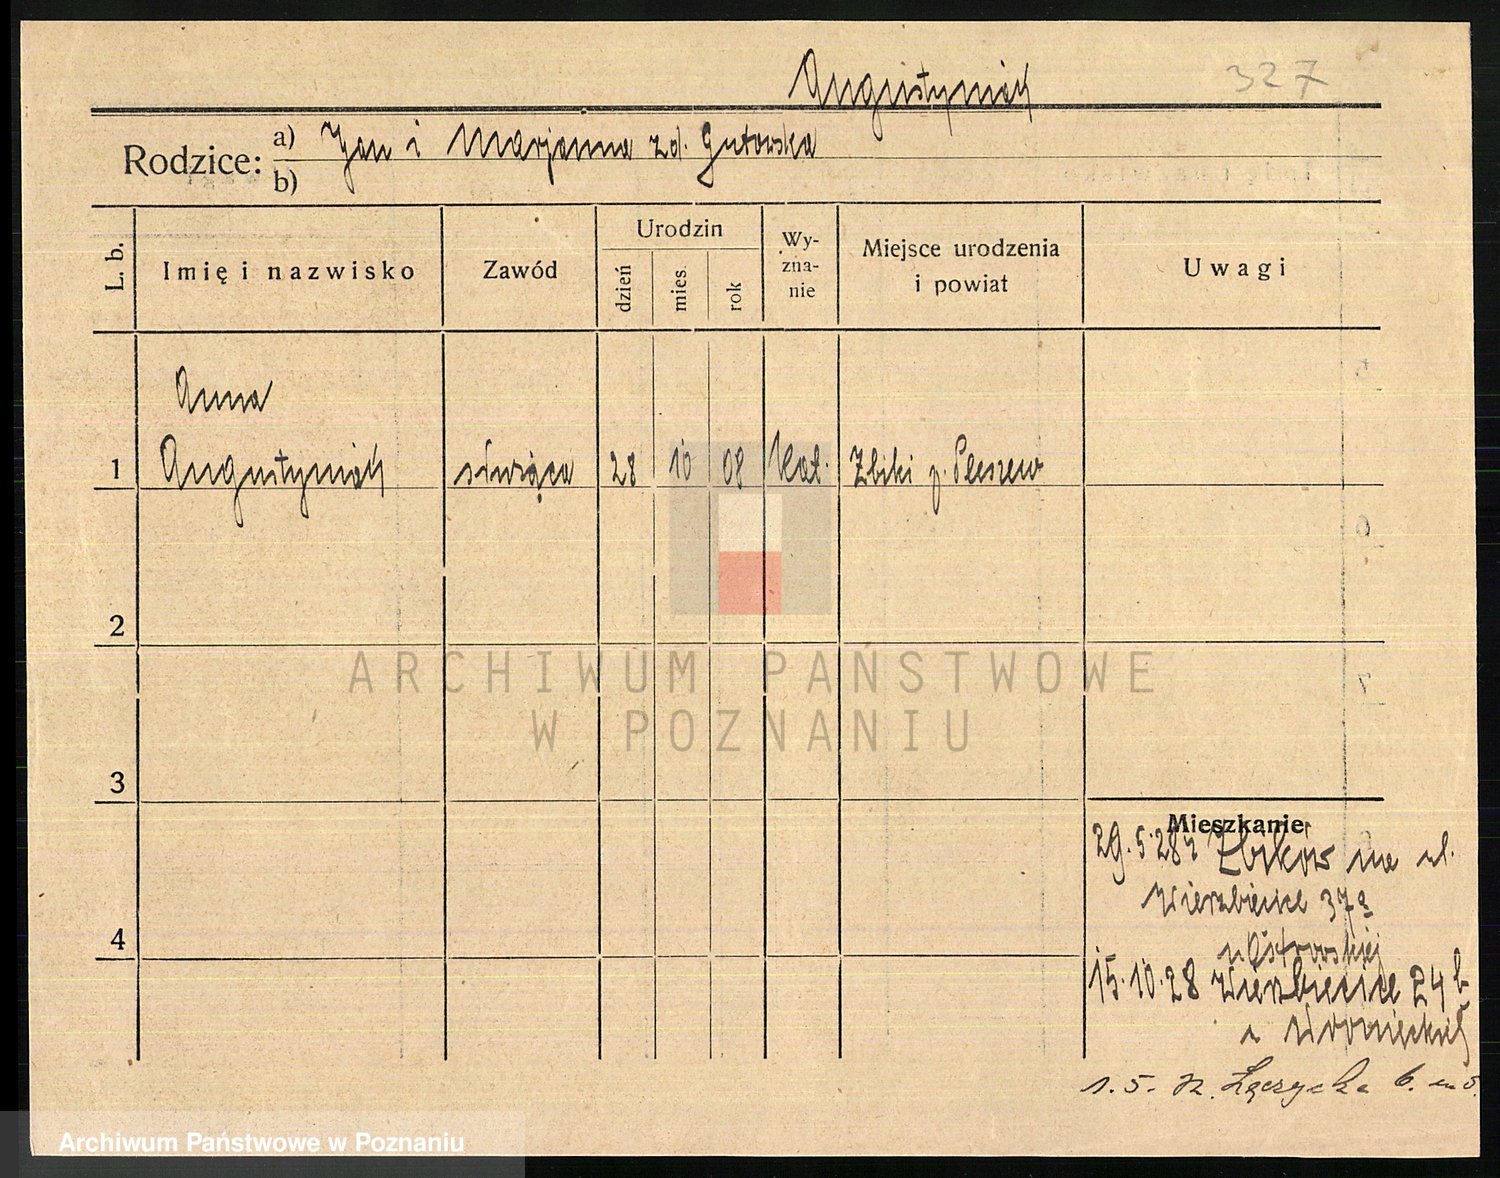 Augustyniak
327
Rodzice: a) Jan i Marjanna zd. Gutowska
b)
L. b.
Imię i nazwisko
Zawód
Urodzin
dzień
mies.
rok
Wy-
zna-
nie
Miejsce urodzenia
i powiat
Uwagi
Anna
1 Augustyniak służąca 28 10 08 kat. Żbiki p. Pleszew
2
ARCHIWUM PAŃSTWOWE
W POZNANIU
3
Mieszkanie
29.5.28 z Żbików na ul.
Wierzbięcice 37a
u Ostrowskiej
4
15.10.28 Wierzbięcice 24 b
u
1.5. Łęczycka 6. m 5.
Archiwum Państwowe w Poznaniu